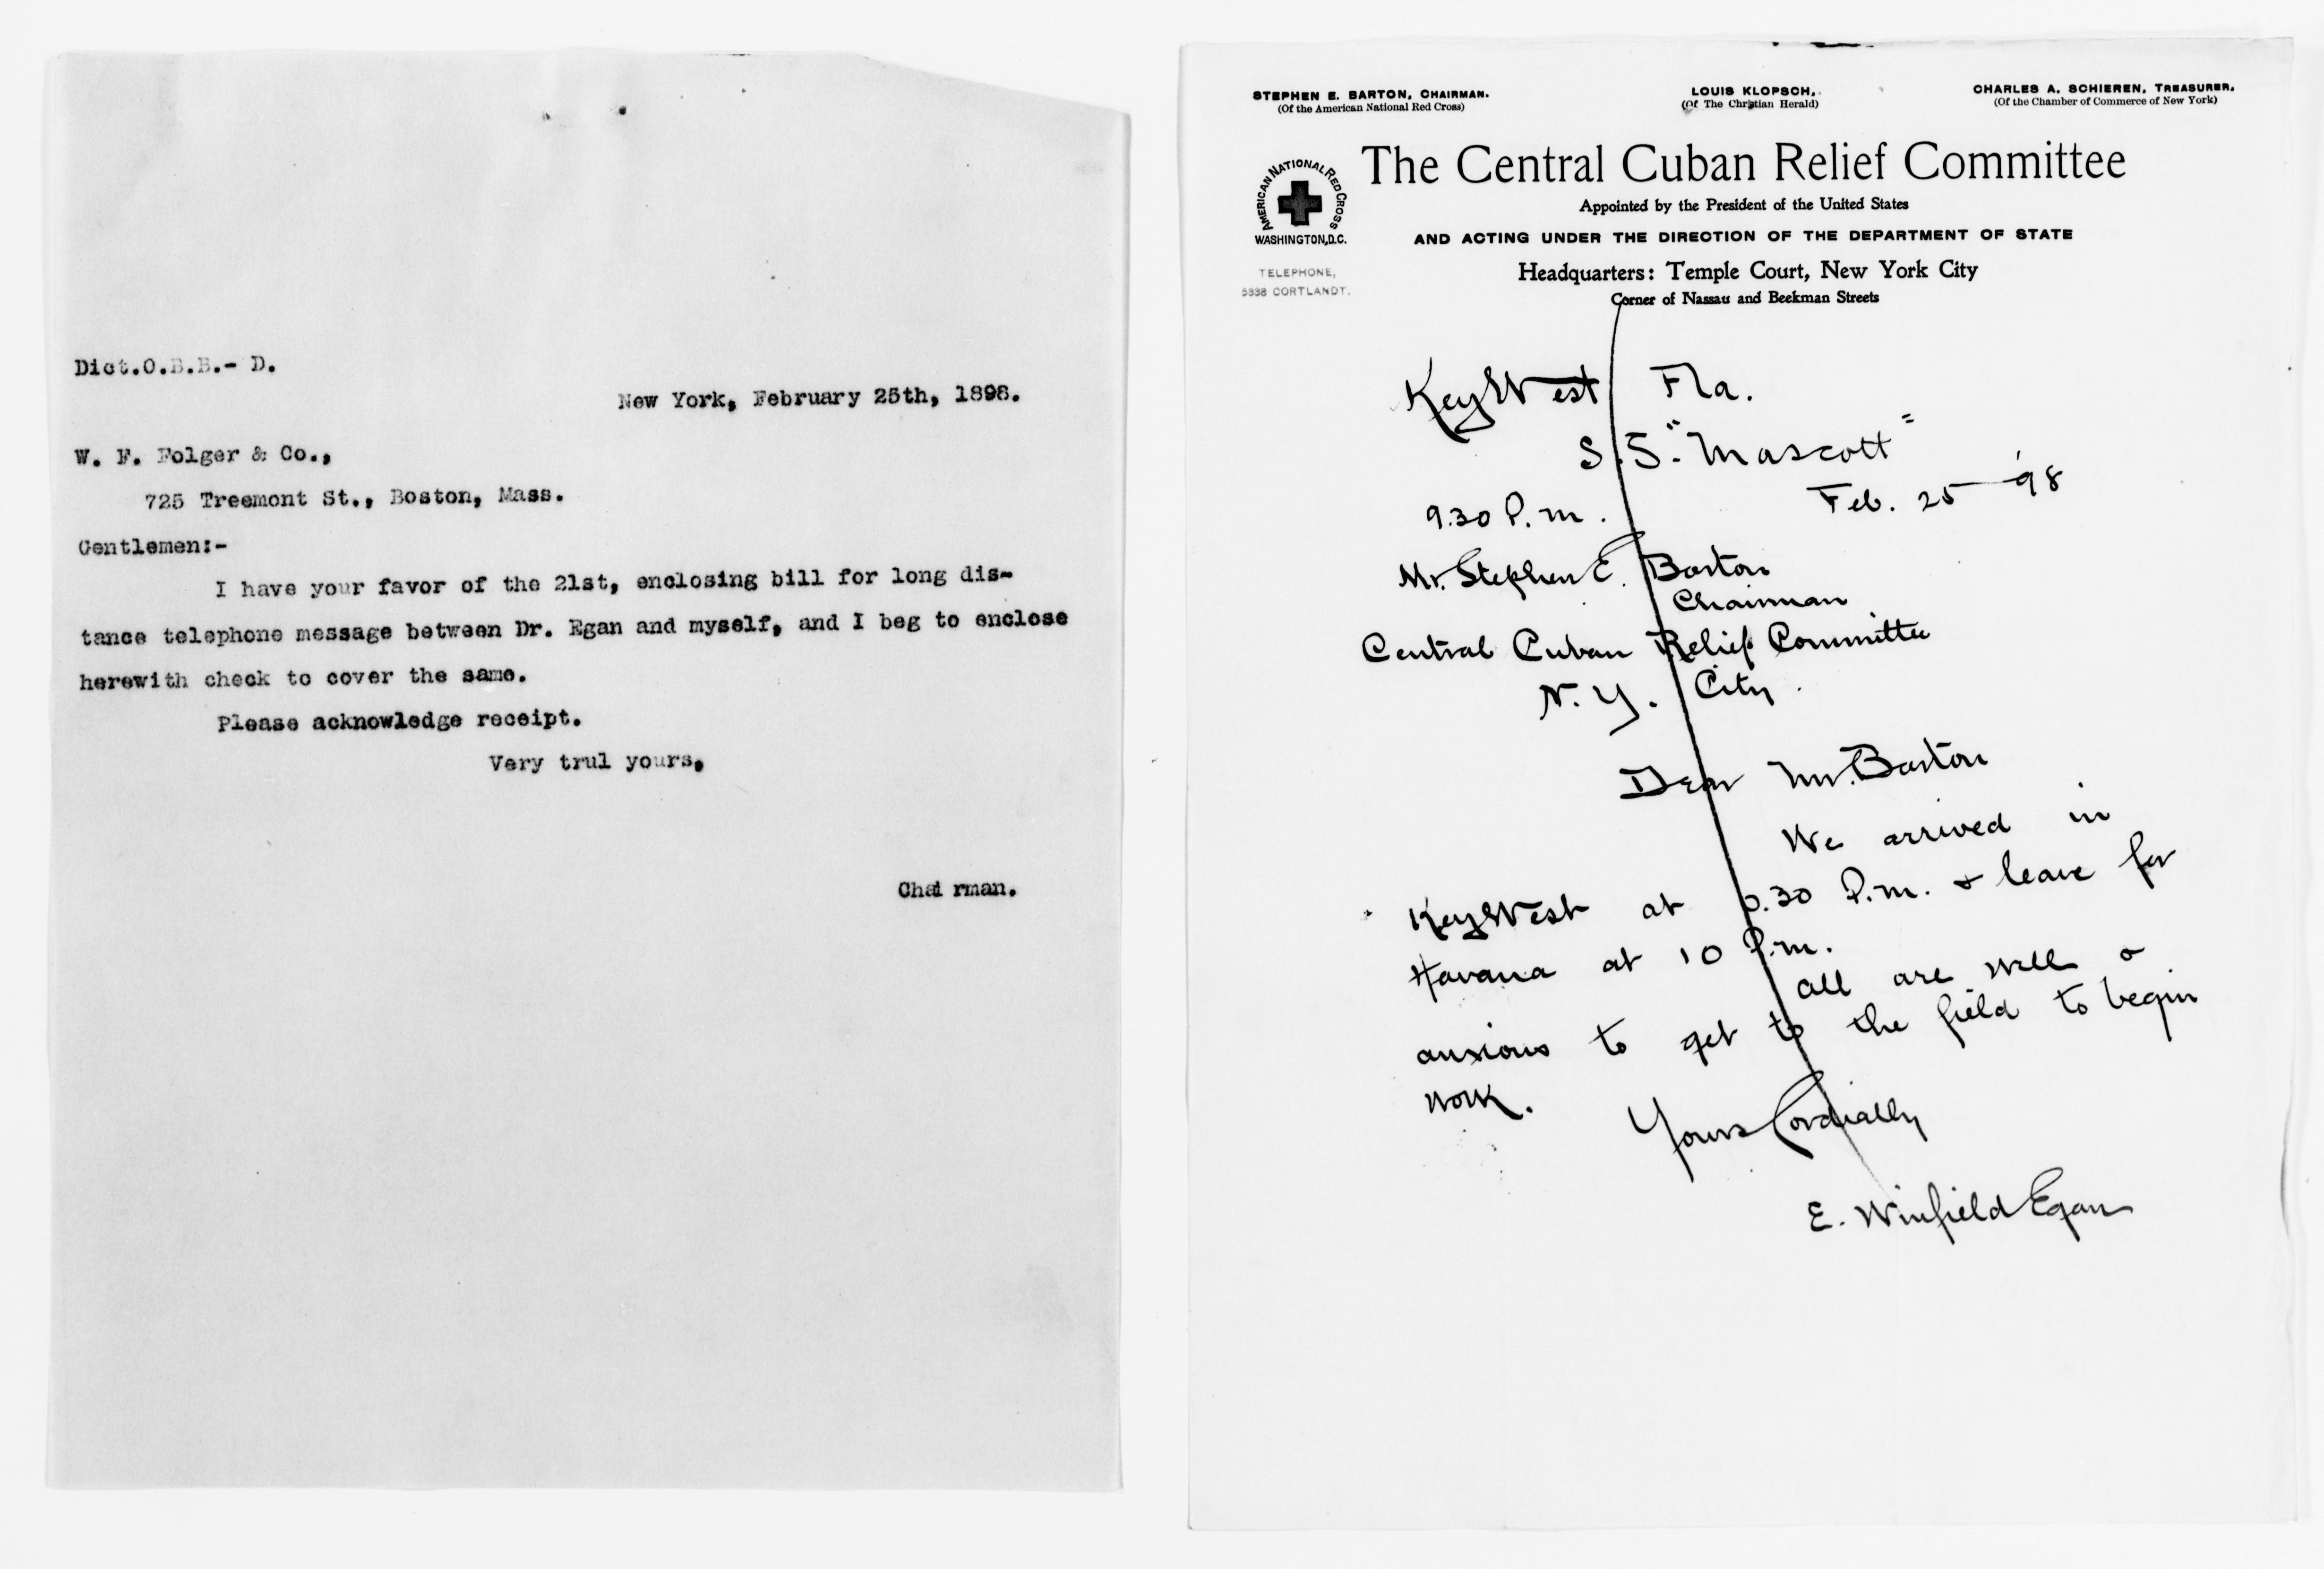 Dict.O.B.B.- D.
New York, February 25th, 1898.
W. F. Folger & Co.,
725 Treemont St., Boston, Mass.
Gentlemen:-
I have your favor of the 21st, enclosing bill for long dis-
tance telephone message between Dr. Egan and myself, and I beg to enclose
herewith check to cover the same.
Please acknowledge receipt.
Very trul yours,
Chai rman.
STEPHEN E. BARTON, CHAIRMAN.
(Of the American National Red Cross)
LOUIS KLOPSCH,
(Of The Christian Herald)
CHARLES A. SCHIEREN, TREASURER.
(Of the Chamber of Commerce of New York)
AMERICAN NATIONAL RED CROSS
WASHINGTON, D.C.
The Central Cuban Relief Committee
Appointed by the President of the United States
AND ACTING UNDER THE DIRECTION OF THE DEPARTMENT OF STATE
TELEPHONE,
5338 CORTLANDT.
Headquarters: Temple Court, New York City
Corner of Nassau and Beekman Streets
Key West Fla.
S.S. "Mascott"
9.30 P.m. Feb. 25 - '98
Mr. Stephen E. Barton
Chairman
Central Cuban Relief Committee
N. Y. City.
Dear Mr. Barton
We arrived in
Key West at .30 P.m. & leave for
Havana at 10 P.m.
All are well &
anxious to get to the field to begin
work.
Yours Cordially
E. Winfield Egan